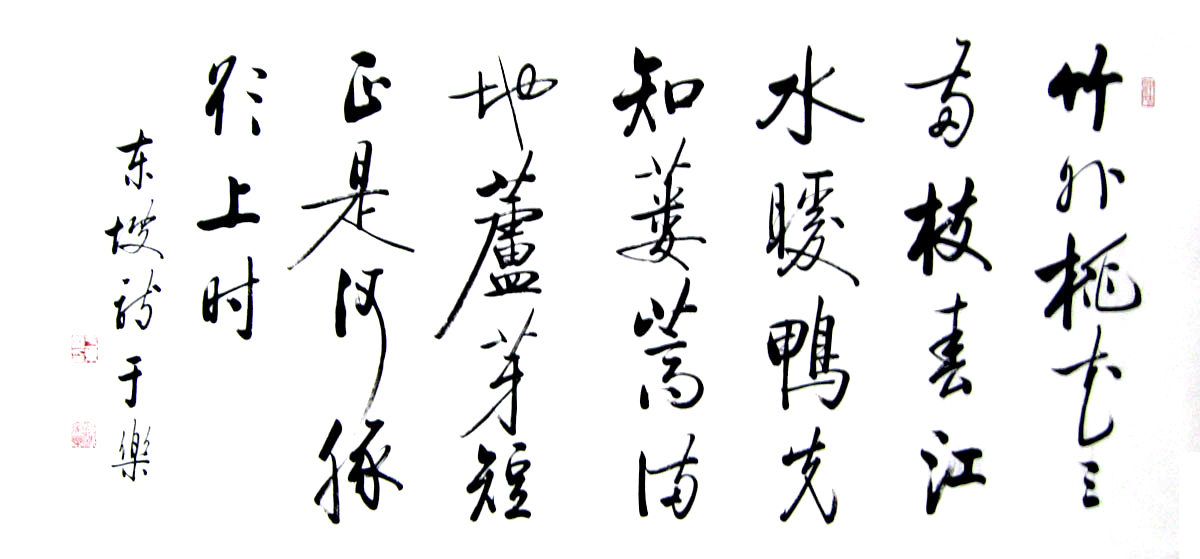 竹外桃花三
两枝春江
水暖鴨先
知蒌蒿满
地蘆芽短
正是河豚
欲上时
东坡诗于樂